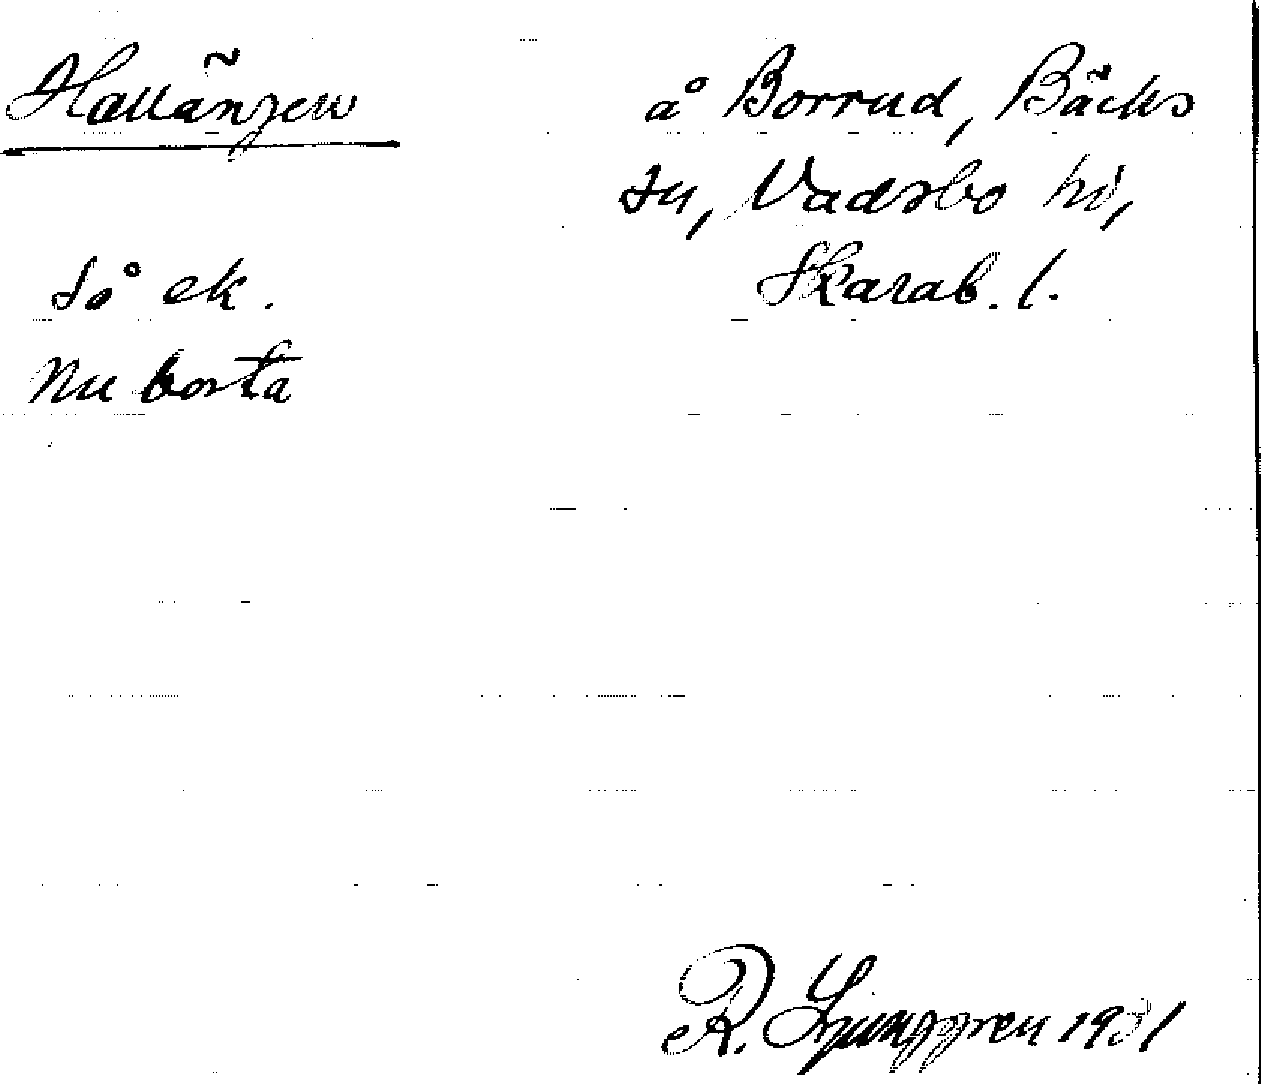 Hallängen
å Borrud, Bäcks
sn, Vadsbo hd,
Skarab. l.
Så ek.
Nu borta
R. Ljunggren 1931